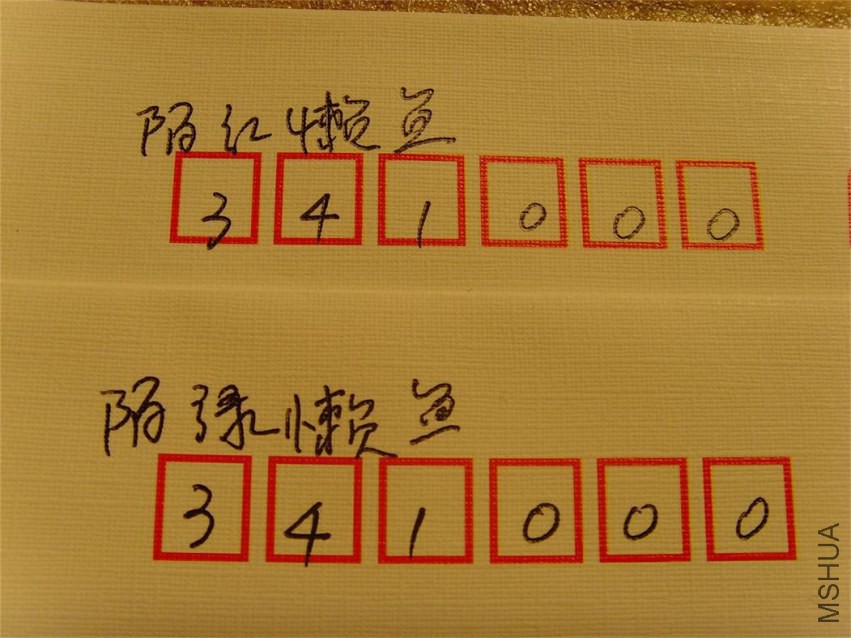 陌红懒鱼
341000
陌绿懒鱼
341000
MSHUA